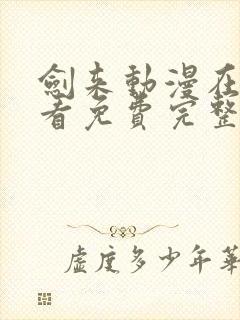 劍来動漫在
看免費完整
虛度多少年華